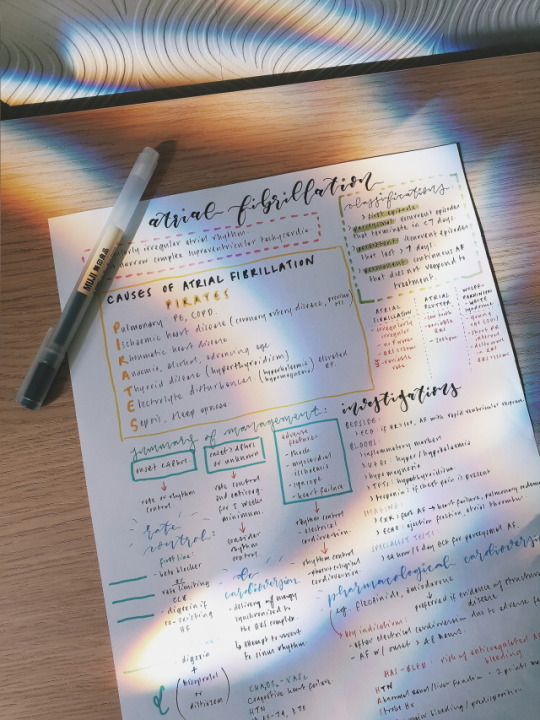 MUJI 無印良品
atrial fibrillation
irregular atrial rhythm
narrow complex supraventricular tachycardia
classifications:
> first episode
paroxysmal: recurrent episodes
that terminate in < 7 days.
persistent: recurrent episodes
that last > 7 days.
> permanent: continuous AF
that does not respond to
treatment.
CAUSES OF ATRIAL FIBRILLATION
PIRATES
Pulmonary: PE, COPD.
Ischaemic heart disease (coronary artery disease, previous
Rheumatic heart disease
Anaemia, alcohol, advancing age
Thyroid disease (hyperthyroidism)
Electrolyte disturbances (hyperkalaemia) elevated
Sepsis, sleep apnoea.
ATRIAL
FIBRILLATION
irregularly
irregular
ATRIAL
FLUTTER
variable
WOLFF-
PARKINSON
WHITE
SYNDROME
summary of management:
onset < 48hrs
rate or rhythm
control
onset > 48hrs
or unknown
rate control
and anticoag.
for 3 weeks
minimum.
consider
rhythm
control
adverse
features:
- shock
- myocardial
ischaemia
- syncope
- heart failure
rhythm
control -
electrical
cardioversion
rhythm control
- pharmacological
cardioversion
investigations
BEDSIDE:
> ECG AF with rapid ventricular
BLOODS
> inflammatory marker
> U+Es: hyper/hypokalaemia
> hypomagnesia
> TFTs: hyperthyroidism
> troponin: if chest pain is present
IMAGING:
> CXR: post AF → heart failure, pulmonary oedema
> ECHO: ejection fraction, atrial thrombus
SPECIALIST TEST:
> 24 hour/5 day ECG for paroxysmal AF.
rate
control:
first line:
- beta blocker
or
rate limiting
CCB.
- digoxin if
co-existing
HF
- digoxin
+
bisoprolol
or
diltiazem
dc
cardioversion
- delivery of energy
synchronised to
the QRS complex
↳ attempt to revert
to sinus rhythm
pharmacological cardioversion
eg. flecainide, amiodarone
preferred if evidence of structural
disease
key indications:
- after electrical cardioversion
- AF w/ onset > 48 hours.
CHADS₂-VASc
Congestive heart failure
HTN
HAS-BLED: risk of anticoagulated
bleeding
HTN
Abnormal renal/liver function - 2 points
Stroke Hx
bleeding/predisposition